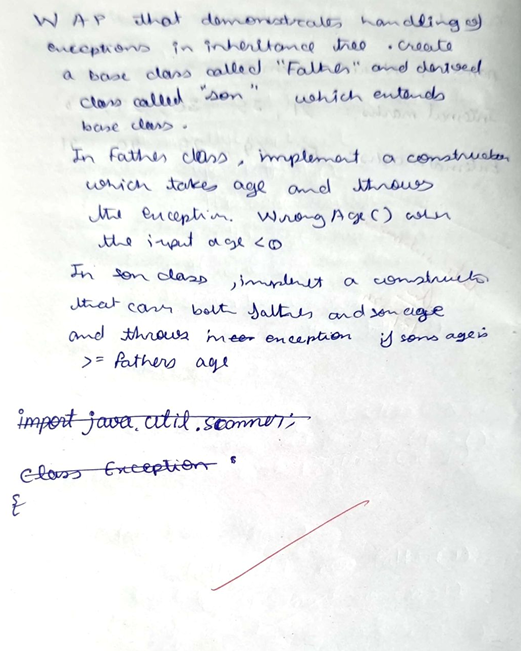 W A P that demonstrates handling of
exceptions in inheritance tree. create
a base class called "Father" and derived
class called "son" which extends
base class.
In Father class, implement a constructor
which takes age and throws
the exception. WrongAge() when
the input age <0
In son class, implement a constructor
that cases both father and son age
and throws an exception if sons age is
>= fathers age
import java.util.scanner;
Class Exception
{